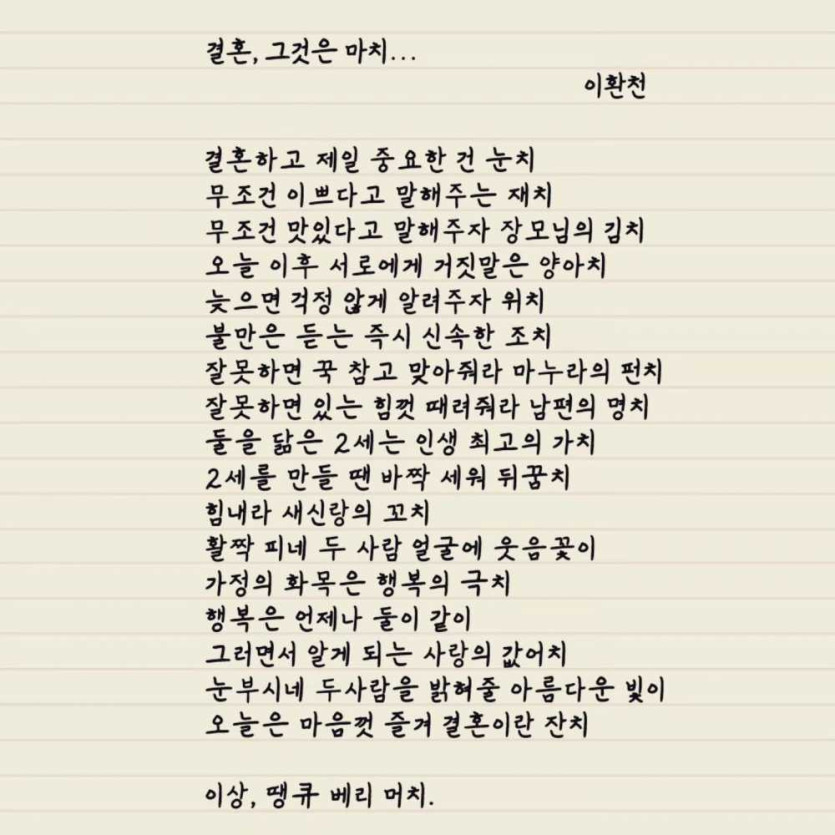 결혼, 그것은 마치...
이환천
결혼하고 제일 중요한 건 눈치
무조건 이쁘다고 말해주는 재치
무조건 맛있다고 말해주자 장모님의 김치
오늘 이후 서로에게 거짓말은 양아치
늦으면 걱정 않게 알려주자 위치
불만은 듣는 즉시 신속한 조치
잘못하면 꾹 참고 맞아줘라 마누라의 펀치
잘못하면 있는 힘껏 때려줘라 남편의 명치
둘을 닮은 2세는 인생 최고의 가치
2세를 만들 땐 바짝 세워 뒤꿈치
힘내라 새신랑의 꼬치
활짝 피네 두 사람 얼굴에 웃음꽃이
가정의 화목은 행복의 극치
행복은 언제나 둘이 같이
그러면서 알게 되는 사랑의 값어치
눈부시네 두사람을 밝혀줄 아름다운 빛이
오늘은 마음껏 즐겨 결혼이란 잔치
이상, 땡큐 베리 머치.